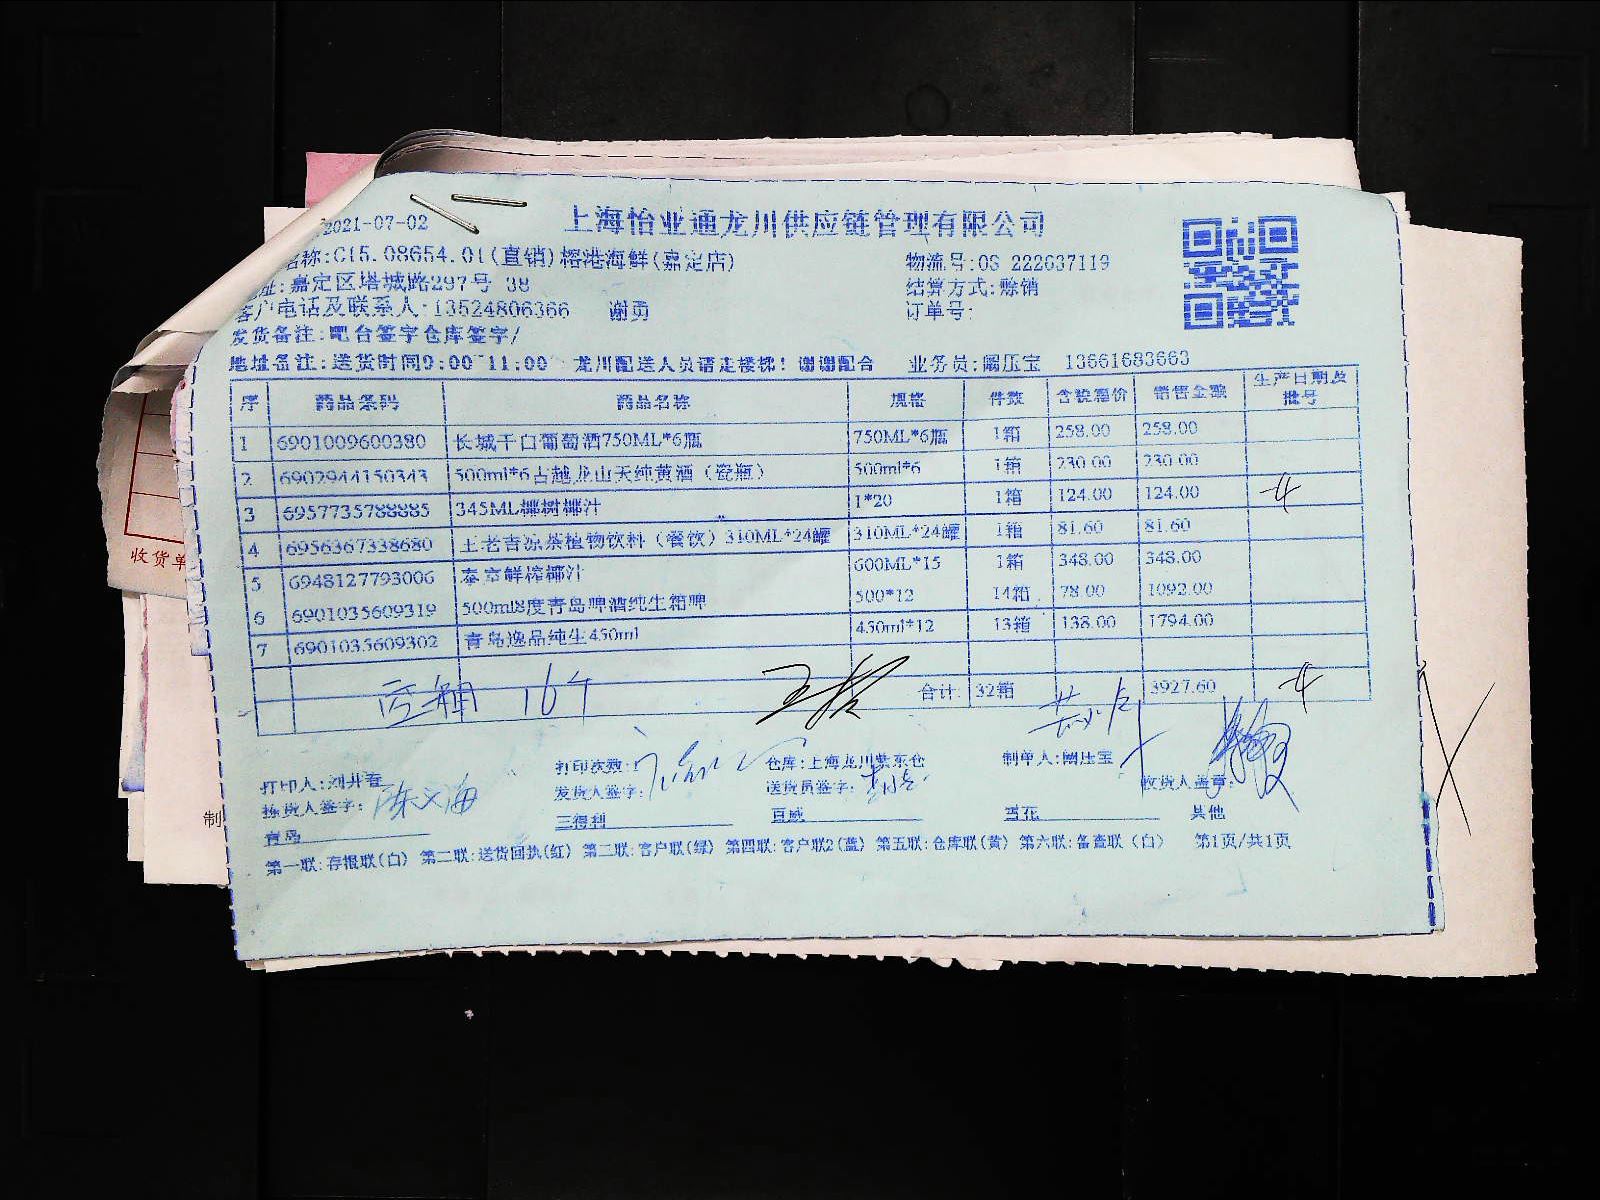 2021-07-02
上海怡亚通龙川供应链管理有限公司
名称:C15.08654.01(直销)榕港海鲜(嘉定店)
物流号:OS 222637119
址:嘉定区塔城路297号 38
结算方式:赊销
客户电话及联系人:13524806366 谢勇
订单号:
发货备注:吧台签字仓库签字/
地址备注:送货时间9:00~11:00 龙川配送人员请走楼梯!谢谢配合 业务员:阚压宝 13661683663
序 商品条码 商品名称 规格 件数 含税箱价 销售金额 生产日期及批号
1 6901009600380 长城干白葡萄酒750ML*6瓶 750ML*6瓶 1箱 258.00 258.00
2 6902944150343 500ml*6古越龙山天纯黄酒(瓷瓶) 500ml*6 1箱 230.00 230.00
3 6957735788885 345ML椰树椰汁 1*20 1箱 124.00 124.00
4 6956367338680 王老吉凉茶植物饮料(餐饮)310ML*24罐 310ML*24罐 1箱 81.60 81.60
5 6948127793006 泰京鲜榨椰汁 600ML*15 1箱 348.00 348.00
6 6901035609319 500ml8度青岛啤酒纯生箱啤 500*12 14箱 78.00 1092.00
7 6901035609302 青岛逸品纯生450ml 450ml*12 13箱 138.00 1794.00
空箱 16个
合计: 32箱 3927.60
打印人:刘开春 打印次数:1 仓库:上海龙川紫东仓 制单人:阚压宝 收货人盖章:
拣货人签字:陈文海 发货人签字: 送货员签字:
青岛 三得利 百威 雪花 其他
第一联:存根联(白) 第二联:送货回执(红) 第三联:客户联(绿) 第四联:客户联2(蓝) 第五联:仓库联(黄) 第六联:备查联(白) 第1页/共1页
收货单
制